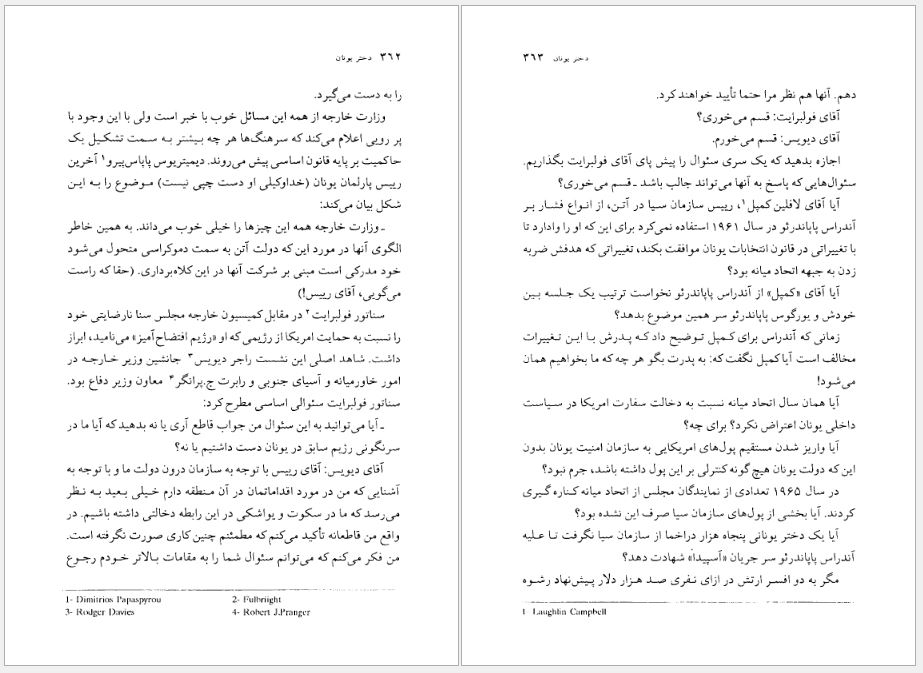 ۳۶۲ دختر یونان
را به دست می‌گیرد.
وزارت خارجه از همه این مسائل خوب با خبر است ولی با این وجود با
پر رویی اعلام می‌کند که سرهنگ‌ها هر چه بیشتر به سمت تشکیل یک
حاکمیت بر پایه قانون اساسی پیش می‌روند. دیمیتریوس پاپاس‌پیرو۱ آخرین
رییس پارلمان یونان (خداوکیلی او دست چپی نیست) موضوع را به این
شکل بیان می‌کند:
ـ وزارت خارجه همه این چیزها را خیلی خوب می‌داند. به همین خاطر
الگوی آنها در مورد این که دولت آتن به سمت دموکراسی متحول می‌شود
خود مدرکی است مبنی بر شرکت آنها در این کلاه‌برداری. (حقا که راست
می‌گویی، آقای رییس!)
سناتور فولبرایت۲ در مقابل کمیسیون خارجه مجلس سنا نارضایتی خود
را نسبت به حمایت امریکا از رژیمی که او «رژیم افتضاح‌آمیز» می‌نامید، ابراز
داشت. شاهد اصلی این نشست راجر دیویس۳ جانشین وزیر خارجه در
امور خاورمیانه و آسیای جنوبی و رابرت ج.پرانگر۴ معاون وزیر دفاع بود.
سناتور فولبرایت سئوالی اساسی مطرح کرد:
ـ آیا می‌توانید به این سئوال من جواب قاطع آری یا نه بدهید که آیا ما در
سرنگونی رژیم سابق در یونان دست داشتیم یا نه؟
آقای دیویس: آقای رییس با توجه به سازمان درون دولت ما و با توجه به
آشنایی که من در مورد اقداماتمان در آن منطقه دارم خیلی بعید به نظر
می‌رسد که ما در سکوت و یواشکی در این رابطه دخالتی داشته باشیم. در
واقع من قاطعانه تأکید می‌کنم که مطمئنم چنین کاری صورت نگرفته است.
من فکر می‌کنم که می‌توانم سئوال شما را به مقامات بالاتر خودم رجوع
1- Dimitrios Papaspyrou
2- Fulbriight
3- Rodger Davies
4- Robert J.Pranger
دختر یونان ۳۶۳
دهم. آنها هم نظر مرا حتما تأیید خواهند کرد.
آقای فولبرایت: قسم می‌خوری؟
آقای دیویس: قسم می‌خورم.
اجازه بدهید که یک سری سئوال را پیش پای آقای فولبرایت بگذاریم.
سئوال‌هایی که پاسخ به آنها می‌تواند جالب باشد ـ قسم می‌خوری؟
آیا آقای لافلین کمپل۱، رییس سازمان سیا در آتن، از انواع فشار بر
آندراس پاپاندرئو در سال ۱۹۶۱ استفاده نمی‌کرد برای این که او را وادارد تا
با تغییراتی در قانون انتخابات یونان موافقت بکند، تغییراتی که هدفش ضربه
زدن به جبهه اتحاد میانه بود؟
آیا آقای «کمپل» از آندراس پاپاندرئو نخواست ترتیب یک جلسه بین
خودش و یورگوس پاپاندرئو سر همین موضوع بدهد؟
زمانی که آندراس برای کمپل توضیح داد که پدرش با این تغییرات
مخالف است آیا کمپل نگفت که: به پدرت بگو هر چه که ما بخواهیم همان
می‌شود!
آیا همان سال اتحاد میانه نسبت به دخالت سفارت امریکا در سیاست
داخلی یونان اعتراض نکرد؟ برای چه؟
آیا واریز شدن مستقیم پول‌های امریکایی به سازمان امنیت یونان بدون
این که دولت یونان هیچ گونه کنترلی بر این پول داشته باشد، جرم نبود؟
در سال ۱۹۶۵ تعدادی از نمایندگان مجلس از اتحاد میانه کناره گیری
کردند. آیا بخشی از پول‌های سازمان سیا صرف این نشده بود؟
آیا یک دختر یونانی پنجاه هزار دراخما از سازمان سیا نگرفت تا علیه
آندراس پاپاندرئو سر جریان «آسپیدا» شهادت دهد؟
مگر به دو افسر ارتش در ازای نفری صد هزار دلار پیش‌نهاد رشوه
1 Laughlin Campbell